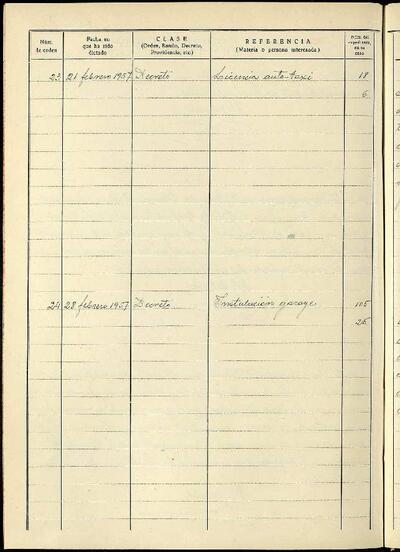 Núm. de orden
Fecha en que ha sido dictado
CLASE
(Orden, Bando, Decreto, Providencia, etc.)
REFERENCIA
(Materia o persona interesada)
23 21 febrero 1957 Decreto Licencia auto-taxi 18
6
24 28 febrero 1957 Decreto Instalación garage 105
26